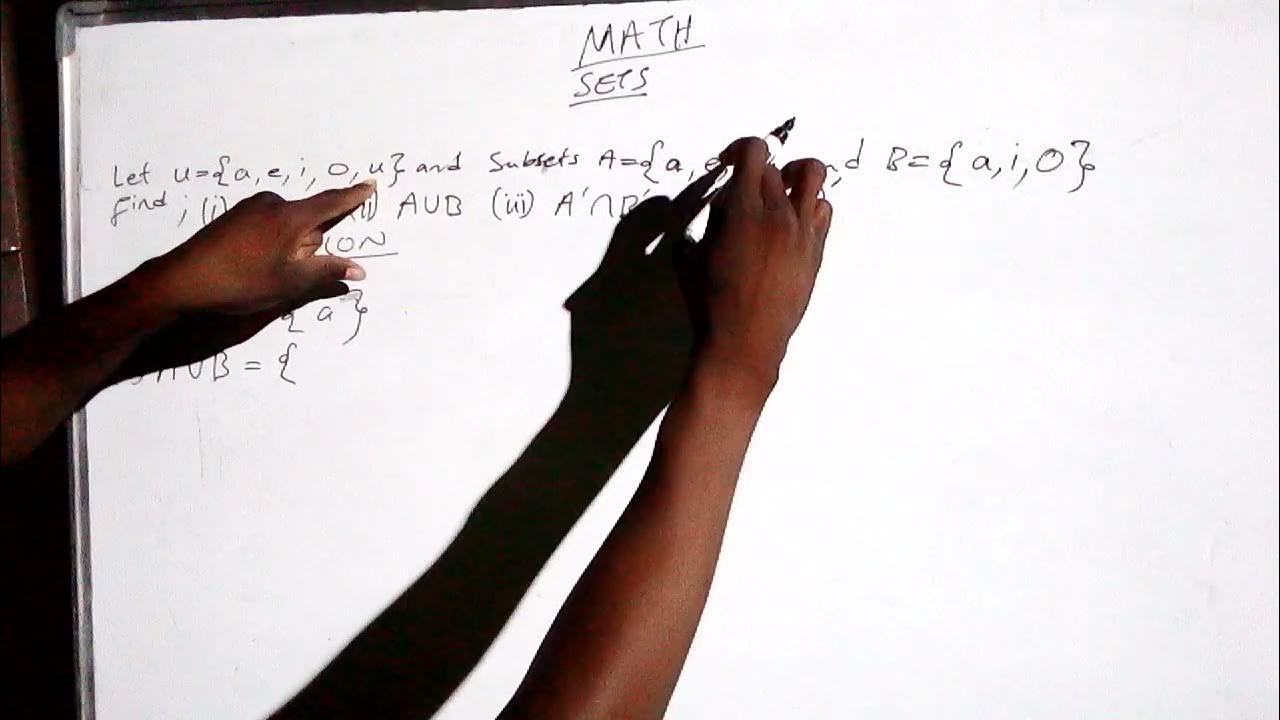 MATH
SETS
Let U={a,e,i,0,u} and Subsets A={a,e, B={a,i,0}
find ; (i) (ii) AUB (iii) A'∩B'
{a}
AUB = {